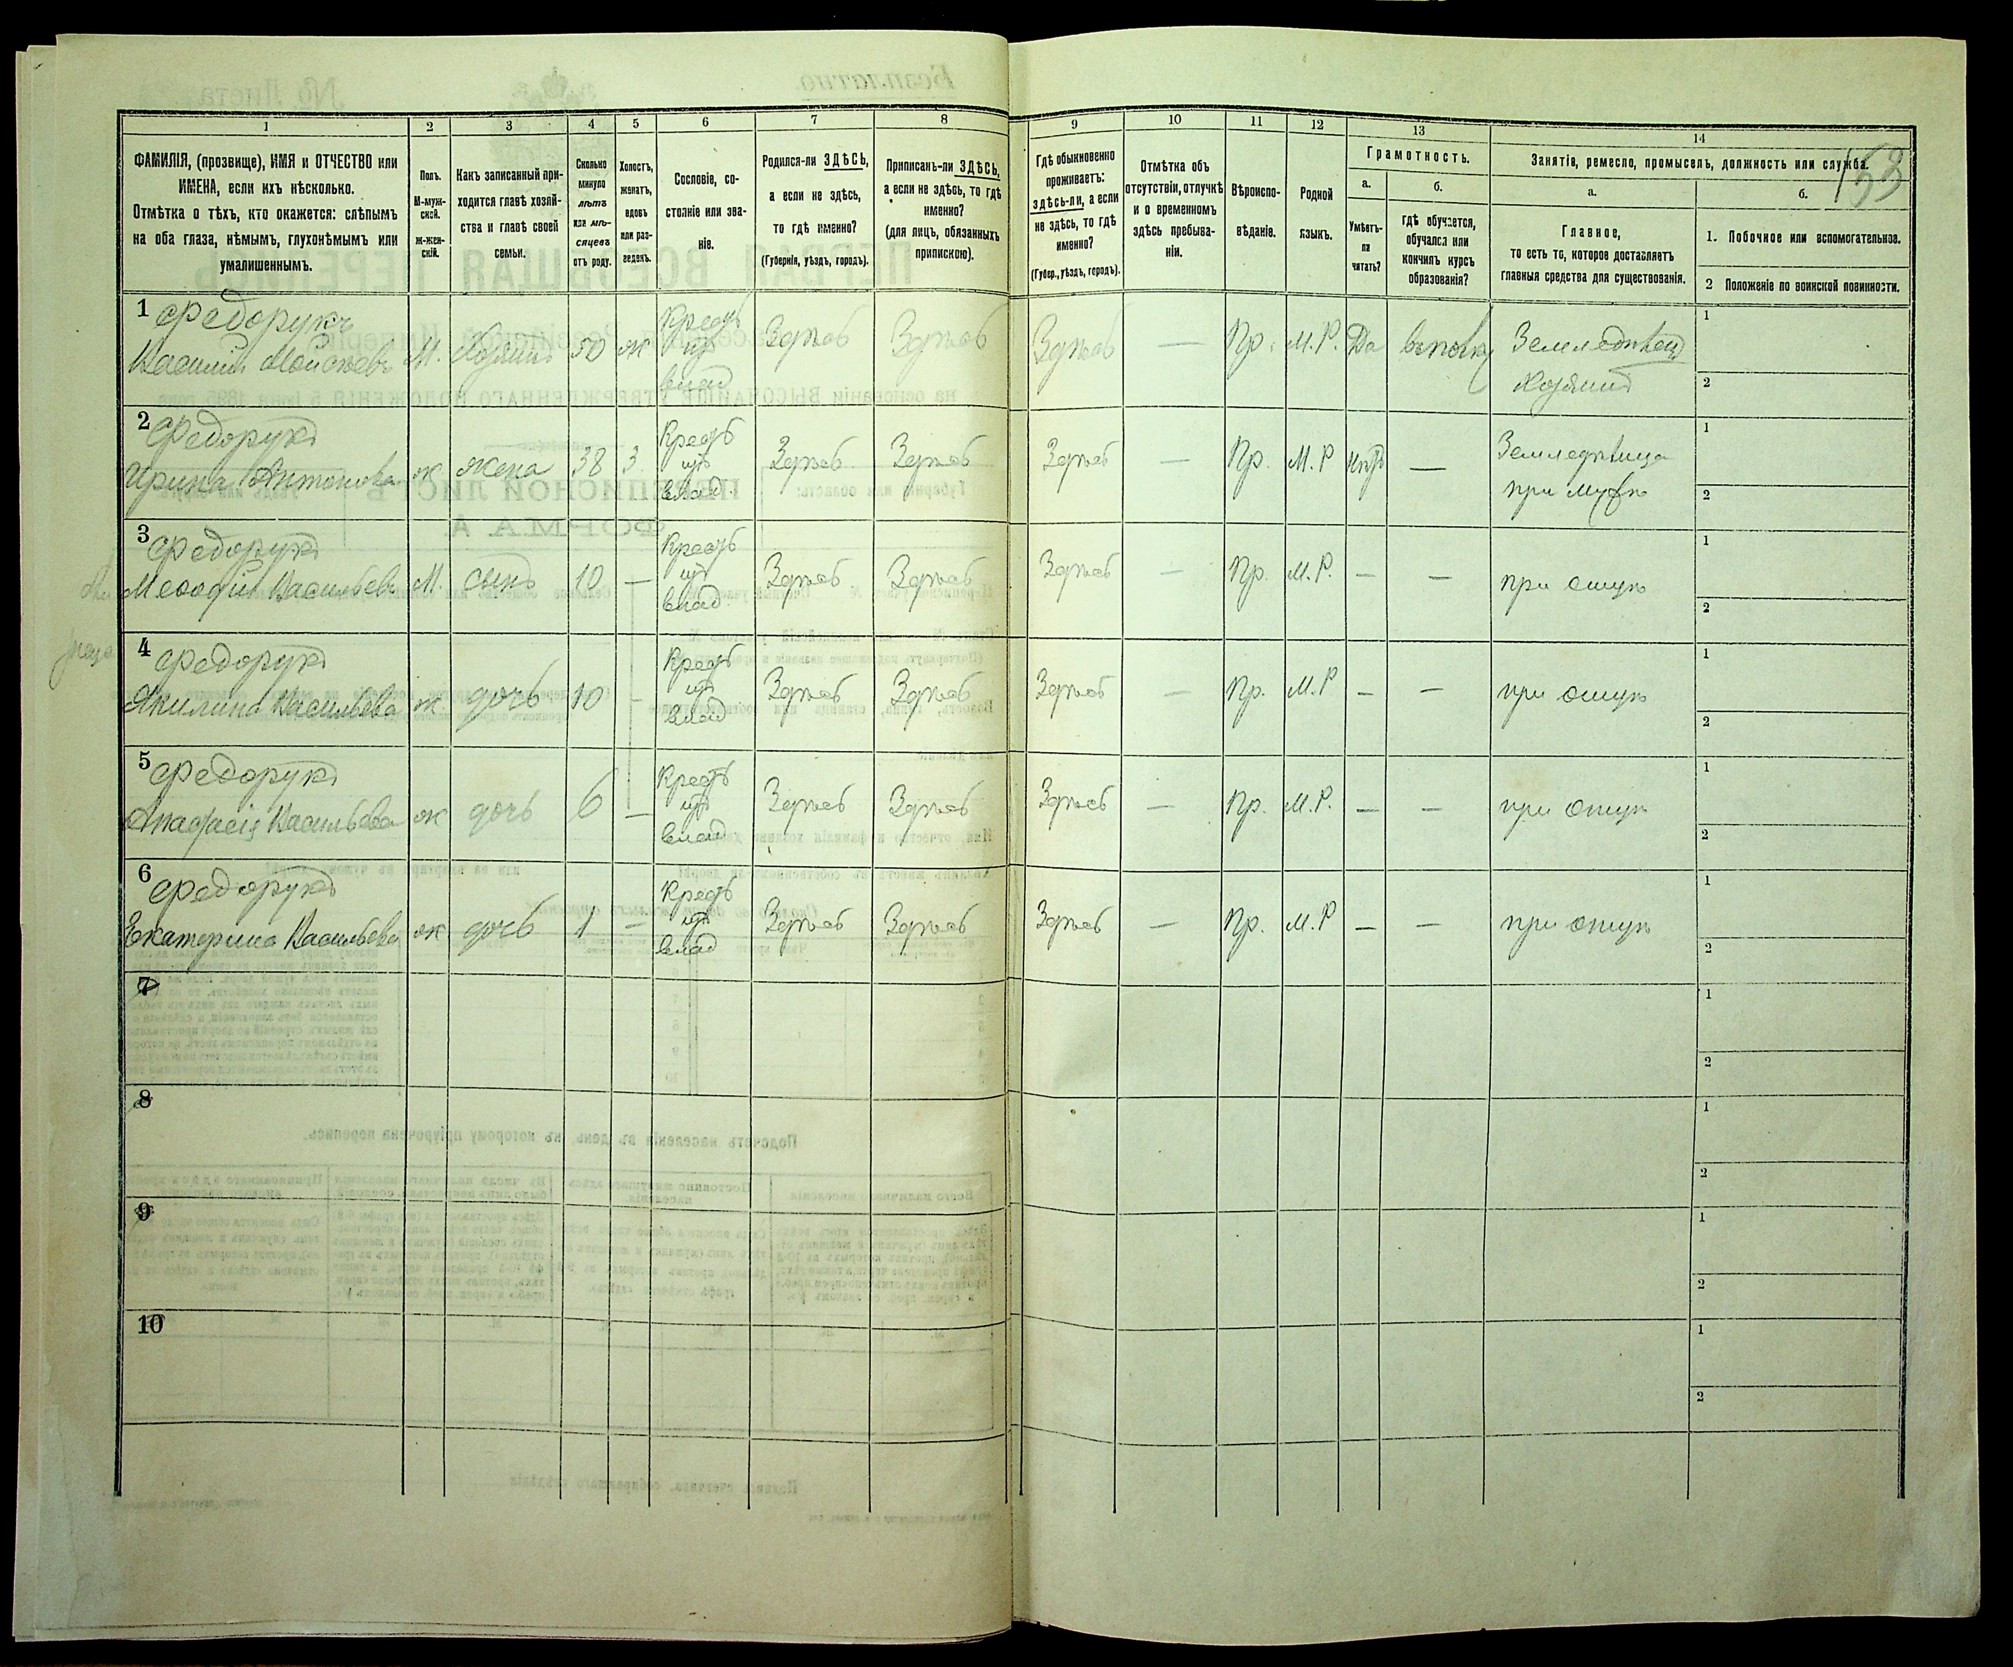 153
1
2
3
4
5
6
7
8
9
10
11
12
13
14
ФАМИЛІЯ, (прозвище), ИМЯ и ОТЧЕСТВО или
ИМЕНА, если ихъ нѣсколько.
Отмѣтка о тѣхъ, кто окажется: слѣпымъ
на оба глаза, нѣмымъ, глухонѣмымъ или
умалишеннымъ.
Полъ.
М-муж-
ской.
ж-жен-
скій.
Какъ записанный при-
ходится главѣ хозяй-
ства и главѣ своей
семьи.
Сколько
минуло
лѣтъ
или мѣ-
сяцевъ
отъ роду.
Холостъ,
женатъ,
вдовъ
или раз-
веденъ.
Сословіе, со-
стояніе или зва-
ніе.
Родился-ли ЗДѢСЬ,
а если не здѣсь,
то гдѣ именно?
(Губернія, уѣздъ, городъ).
Приписанъ-ли ЗДѢСЬ,
а если не здѣсь, то гдѣ
именно?
(для лицъ, обязанныхъ
припискою).
Гдѣ обыкновенно
проживаетъ:
здѣсь-ли, а если
не здѣсь, то гдѣ
именно?
(Губер., уѣздъ, городъ).
Отмѣтка объ
отсутствіи, отлучкѣ
и о временномъ
здѣсь пребыва-
ніи.
Вѣроиспо-
вѣданіе.
Родной
языкъ.
Грамотность.
а.
б.
Умѣетъ-
ли
читать?
гдѣ обучается,
обучался или
кончилъ курсъ
образованія?
Занятіе, ремесло, промыселъ, должность или служба.
а.
б.
Главное,
то есть то, которое доставляетъ
главныя средства для существованія.
1. Побочное или вспомогательное.
2 Положеніе по воинской повинности.
1 Федорукъ
Василій Моисеевъ М. Хозяинъ 50 ж Крест. изъ влад Здѣсь Здѣсь Здѣсь — Пр. М.Р. Да Земледѣлец
Хозяинъ
1
2
2 Федорукъ
Ирина Антонова ж жена 38 З Крест изъ влад. Здѣсь Здѣсь Здѣсь — Пр. М.Р нѣтъ — Земледѣлица
при мужѣ
1
2
3 Федорукъ
Меѳодій Васильевъ М. сынъ 10 — Крест изъ влад. Здѣсь Здѣсь Здѣсь — Пр. М.Р. — — при отцѣ
1
2
4 Федорукъ
Акилина Васильева ж дочь 10 — Крест изъ влад Здѣсь Здѣсь Здѣсь — Пр. М.Р — — при отцѣ
1
2
5 Федорукъ
Анастасія Васильева ж дочь 6 — Крест изъ влад Здѣсь Здѣсь Здѣсь — Пр. М.Р. — — при отцѣ
1
2
6 Федорукъ
Екатерина Васильева ж дочь 1 — Крест изъ влад Здѣсь Здѣсь Здѣсь — Пр. М.Р — — при отцѣ
1
2
7
1
2
8
1
2
9
1
2
10
1
2